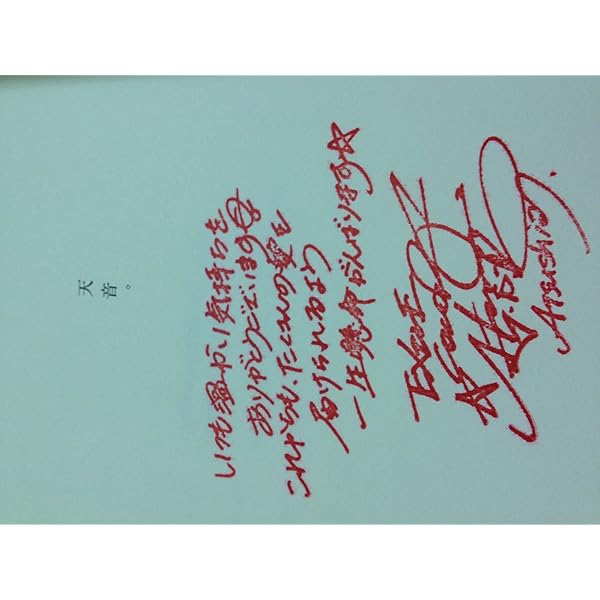 天音。
いつも温かい気持ちを
ありがとうございます
これからも、たくさんの愛を
届けられるよう
一生懸命がんばります☆